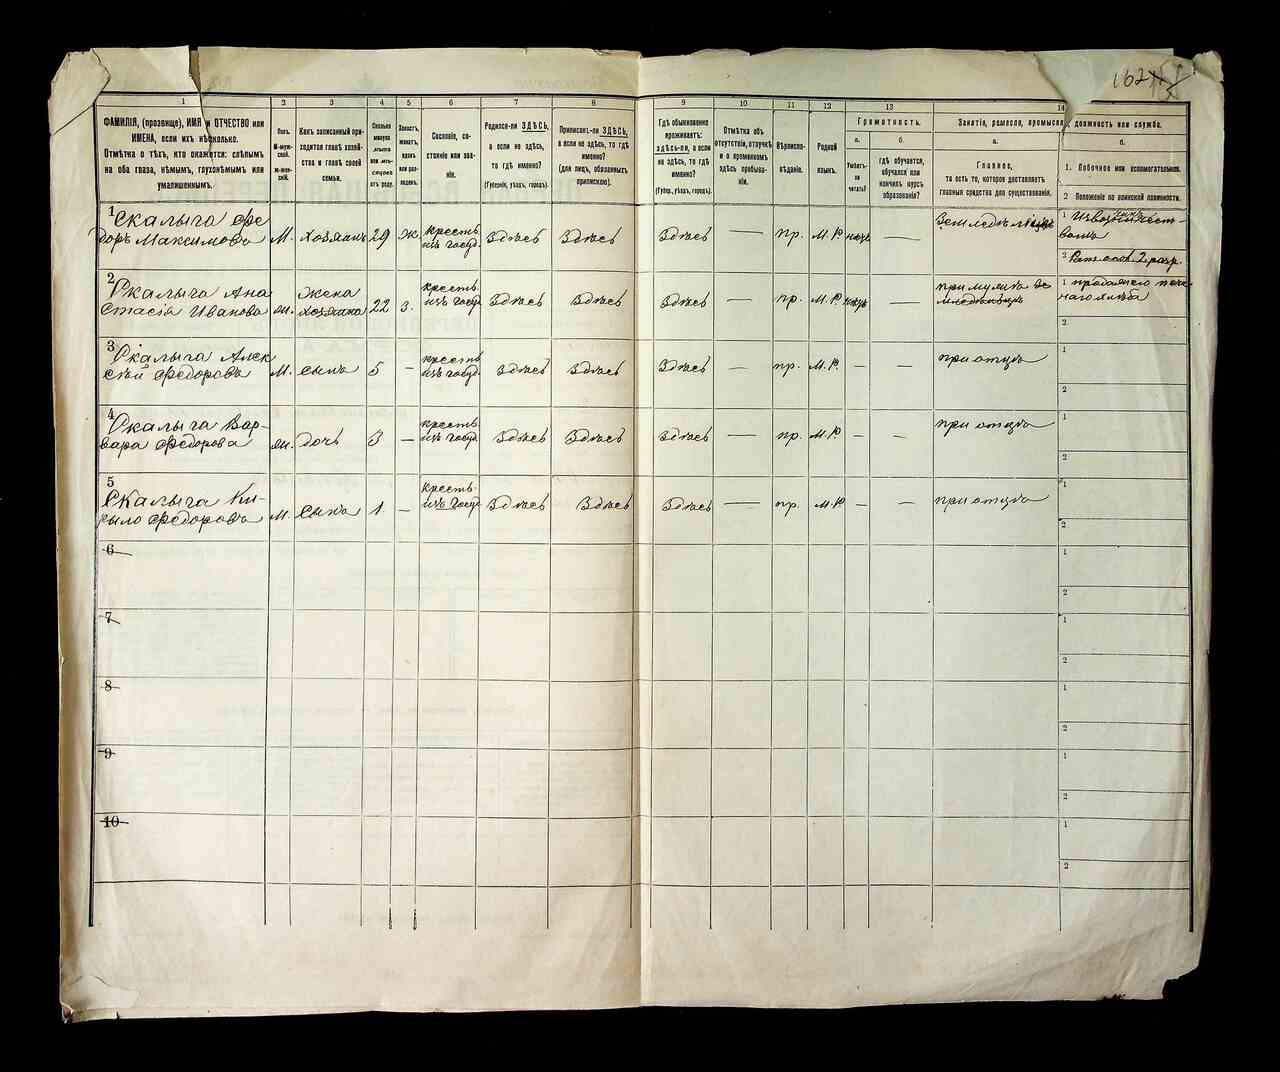 162
1
2
3
4
5
6
7
8
9
10
11
12
13
14
ФАМИЛІЯ, (прозвище), ИМЯ и ОТЧЕСТВО или
ИМЕНА, если ихъ нѣсколько.
Отмѣтка о тѣхъ, кто окажется: слѣпымъ
на оба глаза, нѣмымъ, глухонѣмымъ или
умалишеннымъ.
Полъ.
М-муж-
ской.
Ж-жен-
скій.
Какъ записанный при-
ходится главѣ хозяй-
ства и главѣ своей
семьи.
Сколько
минуло
лѣтъ
или мѣ-
сяцевъ
отъ роду.
Холостъ,
женатъ,
вдовъ
или раз-
веденъ.
Сословіе, со-
стояніе или зва-
ніе.
Родился-ли ЗДѢСЬ,
а если не здѣсь,
то гдѣ именно?
(Губернія, уѣздъ, городъ).
Приписанъ-ли ЗДѢСЬ,
а если не здѣсь, то гдѣ
именно?
(для лицъ, обязанныхъ
припискою).
Гдѣ обыкновенно
проживаетъ:
здѣсь-ли, а если
не здѣсь, то гдѣ
именно?
(Губерн., уѣздъ, городъ).
Отмѣтка объ
отсутствіи, отлучкѣ
и о временномъ
здѣсь пребыва-
ніи.
Вѣроиспо-
вѣданіе.
Родной
языкъ.
Грамотность.
а.
Умѣетъ-
ли
читать?
б.
гдѣ обучается,
обучался или
кончилъ курсъ
образованія?
Занятіе, ремесло, промыселъ, должность или служба.
а.
Главное,
то есть то, которое доставляетъ
главныя средства для существованія.
б.
1. Побочное или вспомогательное.
2 Положеніе по воинской повинности.
1 Скалыга Фе-
доръ Максимовъ М. хозяинъ 29 ж. крестьянъ
изъ госуд. Здѣсь Здѣсь Здѣсь — пр. М.Р. нѣтъ —
Земледѣлецъ
1 Извозничест-
вомъ
2 Рат. опол. 2 разр.
2 Скалыга Ана
стасія Иванова ж. жена
хозяина 22 з. кресть.
изъ госуд Здѣсь Здѣсь Здѣсь — пр. М.Р. нѣтъ —
при мужѣ зе
1 продажею пече-
наго хлѣба
2
3 Скалыга Алек
сѣй Федоровъ М. сынъ 5 — кресть
изъ госуд. Здѣсь Здѣсь Здѣсь — пр. М.Р. — — при отцѣ
1
2
4 Скалыга Вар-
вара Федорова ж. дочь 3 — кресть.
изъ госуд Здѣсь Здѣсь Здѣсь — пр. М.Р. — — при отцѣ
1
2
5 Скалыга Ки-
рыло Федоровъ М. сынъ 1 — кресть
изъ госуд Здѣсь Здѣсь Здѣсь — пр. М.Р. — — при отцѣ
1
2
6
1
2
7
1
2
8
1
2
9
1
2
10
1
2